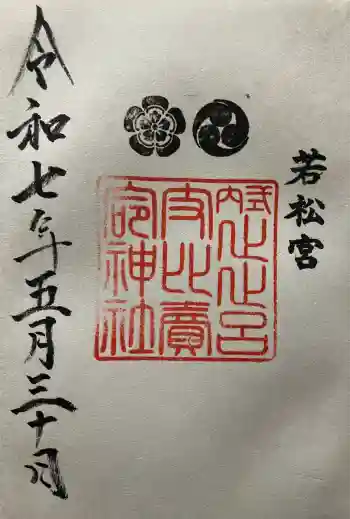 若松宮
式内止止呂
支比賣
命神社
令和七年五月三十日